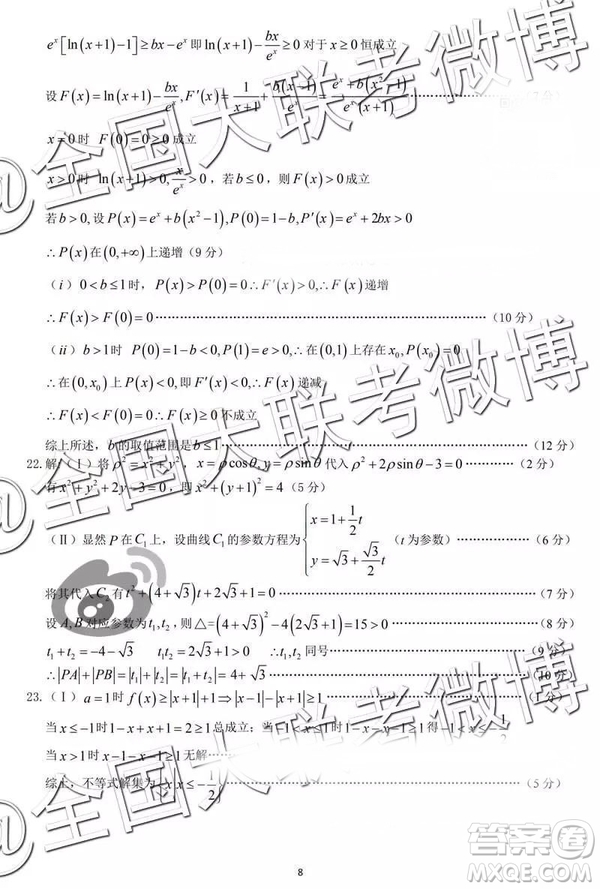 e^x[ln(x+1)-1]≥bx-e^x 即ln(x+1)-bx/e^x≥0 对于 x≥0 恒成立
设 F(x)=ln(x+1)-bx/e^x, F'(x)=1/(x+1)+b(x-1)/e^x=(e^x+b(x^2-1))/(e^x(x+1)) ……(7分)
x=0时 F(0)=0≥0成立
x>0时 ln(x+1)>0, x/e^x>0，若 b≤0，则 F(x)>0成立
若b>0,设 P(x)=e^x+b(x^2-1),P(0)=1-b,P'(x)=e^x+2bx>0
∴P(x)在(0,+∞)上递增(9分)
(i) 0<b≤1时，P(x)>P(0)≥0∴F'(x)>0,∴F(x)递增
∴F(x)>F(0)=0 ……(10分)
(ii) b>1时 P(0)=1-b<0,P(1)=e>0,∴在(0,1)上存在x_0,P(x_0)=0
∴在(0,x_0)上P(x)<0，即F'(x)<0，∴F(x)递减
∴F(x)<F(0)=0∴不成立
综上所述，b的取值范围是b≤1 ……(12分)
22.解:(Ⅰ)将ρ^2=x^2+y^2，x=ρcosθ,y=ρsinθ代入ρ^2+2ρsinθ-3=0 ……(2分)
有x^2+y^2+2y-3=0，即x^2+(y+1)^2=4(5分)
(Ⅱ)显然P在C_1上，设曲线C_1的参数方程为{x=1+1/2 t, y=√3+√3/2 t (t为参数) ……(6分)
将其代入C_2有t^2+(4+√3)t+2√3+1=0 ……(7分)
设A,B对应参数为t_1,t_2，则△=(4+√3)^2-4(2√3+1)=15>0 ……(8分)
t_1+t_2=-4-√3 t_1t_2=2√3+1>0 ∴t_1,t_2同号 ……(9分)
∴|PA|+|PB|=|t_1|+|t_2|=|t_1+t_2|=4+√3 ……(10分)
23.(Ⅰ)a=1时f(x)≥|x+1|+1⇒|x-1|-|x+1|≥1
当x≤-1时1-x+x+1=2≥1总成立；当-1<x≤1时1-x-x-1≥1得-1<x≤-1/2
当x>1时x-1-x-1≥1无解
综上，不等式解集为{x|x≤-1/2} ……(5分)
8
@全国大联考微博
@全国大联考微博
@全国大联考微博
答案圈
MXQE.COM